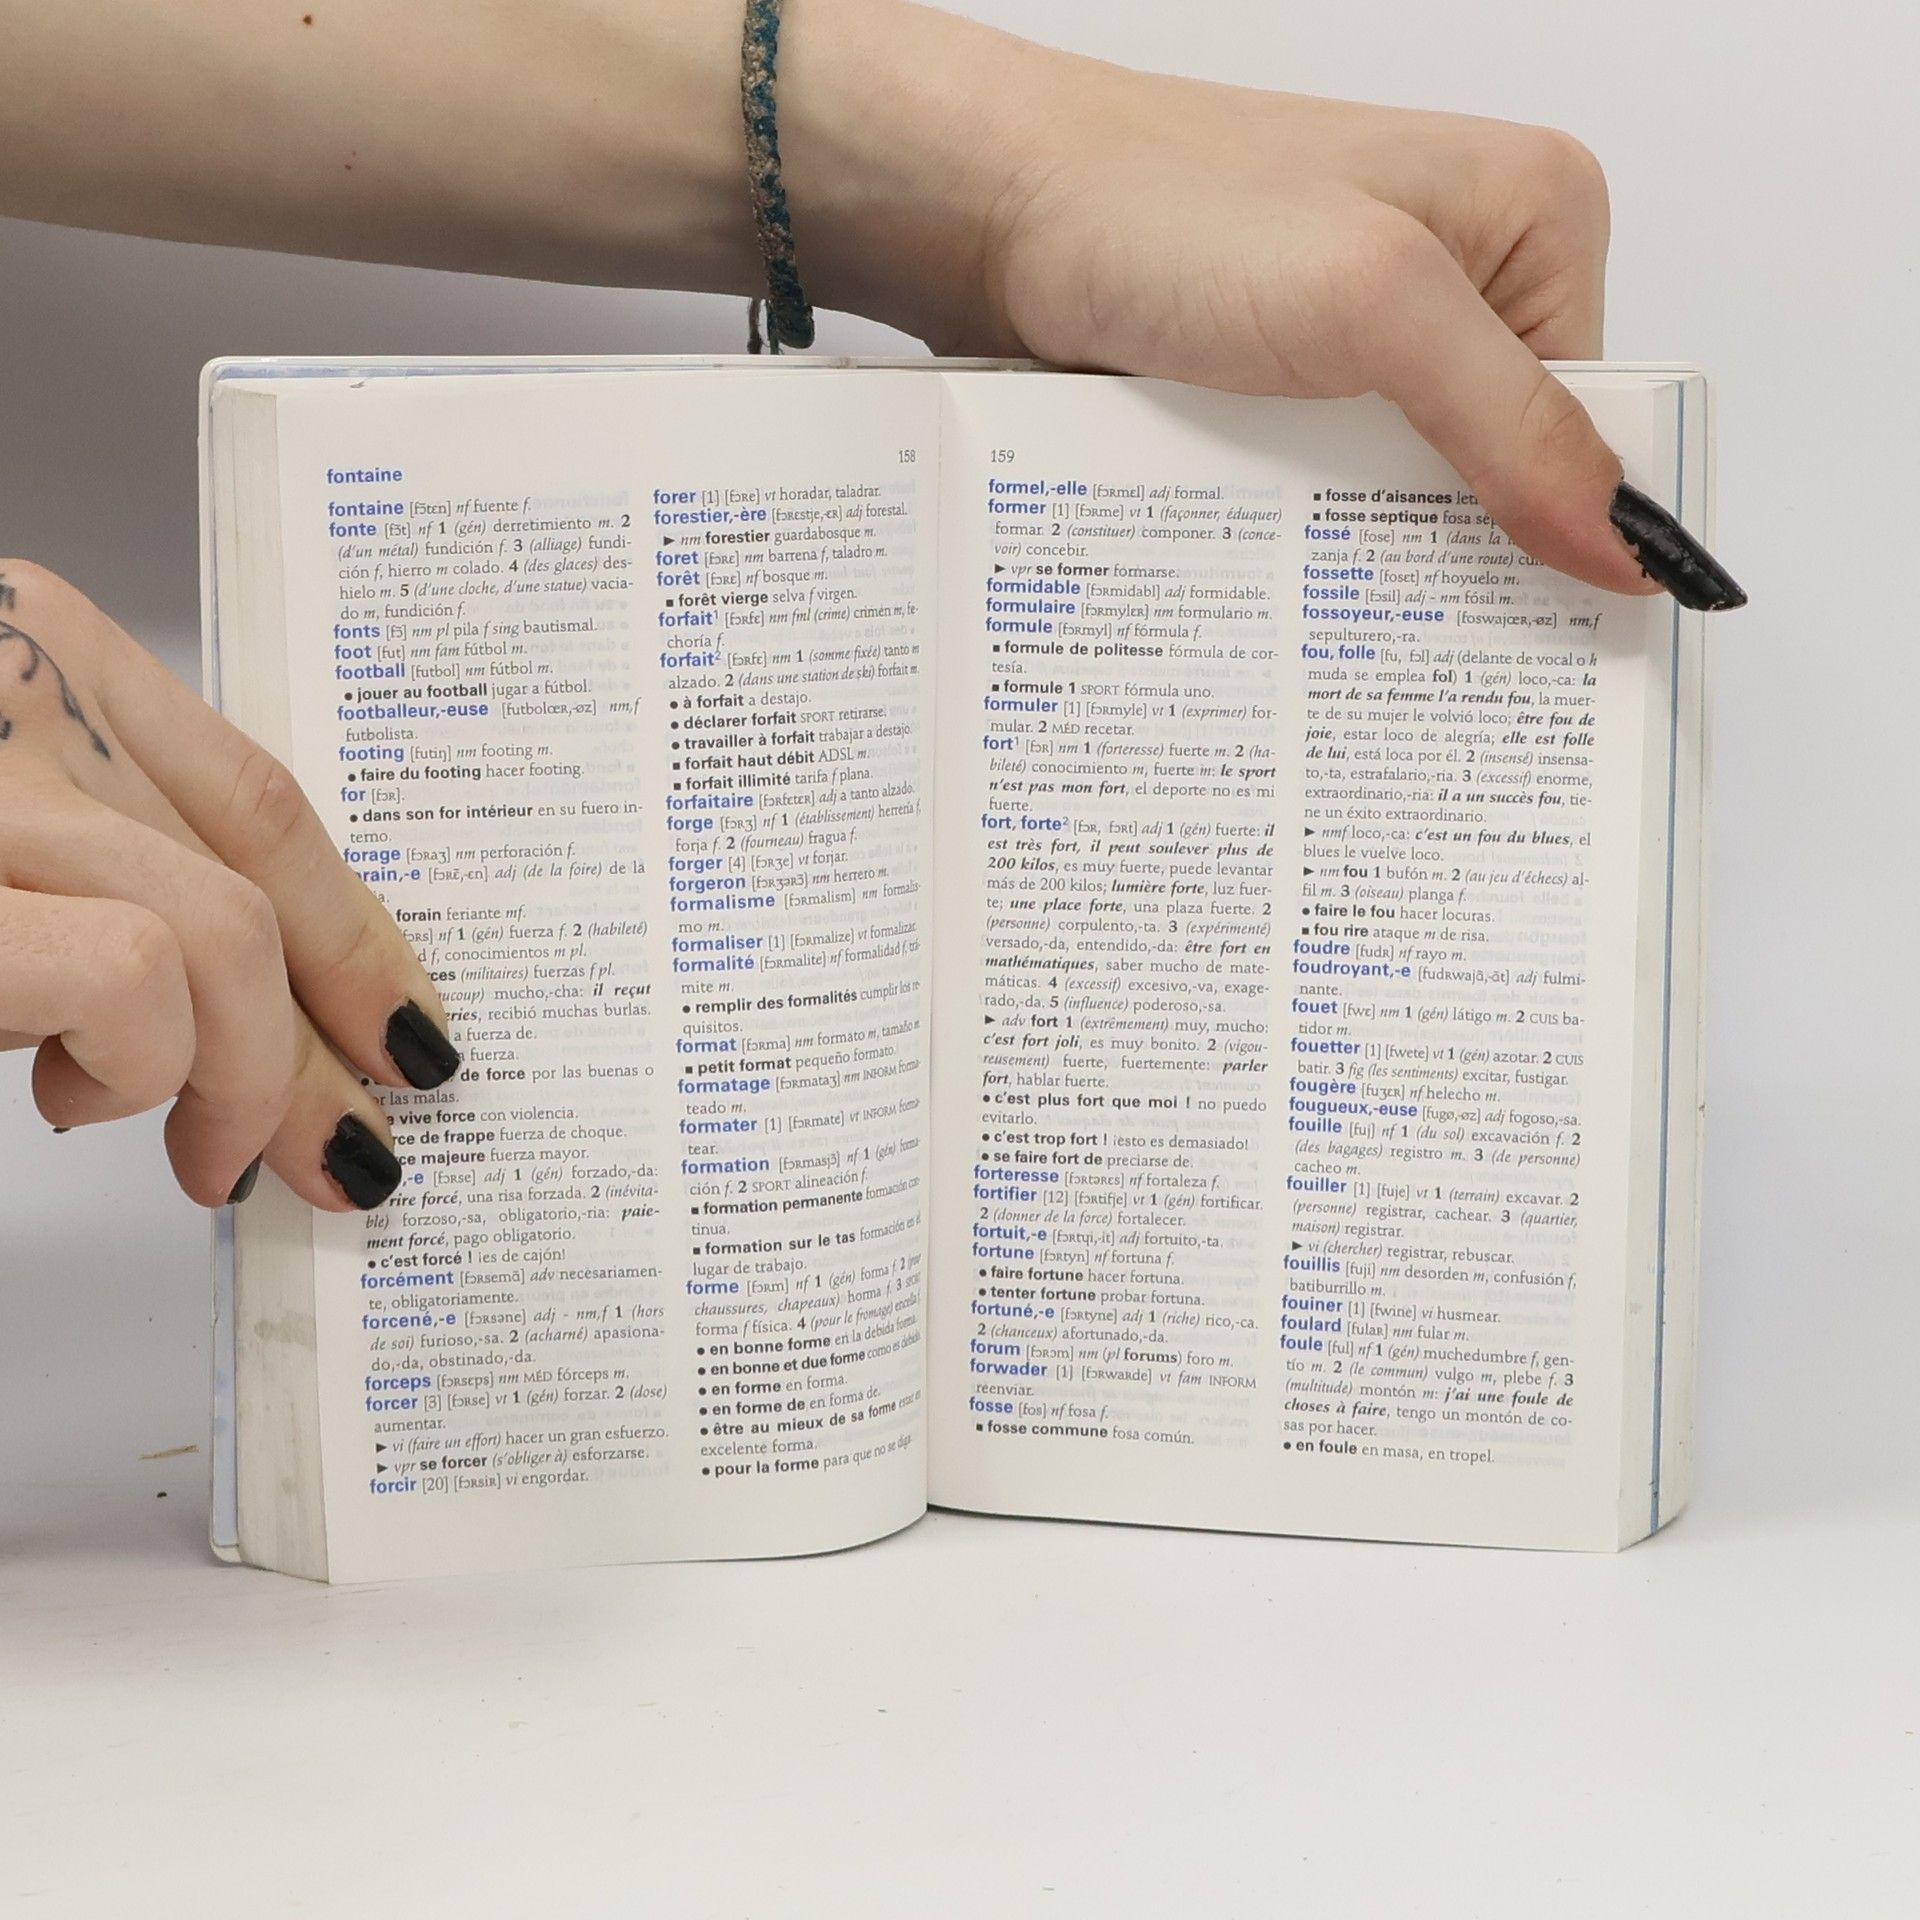 fontaine
158
fontaine [fɔ̃tɛn] nf fuente f.
fonte [fɔ̃t] nf 1 (gén) derretimiento m. 2
(d'un métal) fundición f. 3 (alliage) fundi-
ción f, hierro m colado. 4 (des glaces) des-
hielo m. 5 (d'une cloche, d'une statue) vacia-
do m, fundición f.
fonts [fɔ̃] nm pl pila f sing bautismal.
foot [fut] nm fam fútbol m.
football [futbol] nm fútbol m.
● jouer au football jugar a fútbol.
footballeur,-euse [futbolœʀ,-øz] nm,f
futbolista.
footing [futiŋ] nm footing m.
● faire du footing hacer footing.
for [fɔʀ].
● dans son for intérieur en su fuero in-
terno.
forage [fɔʀaʒ] nm perforación f.
orain,-e [fɔʀɛ̃,-ɛn] adj (de la foire) de la
a.
forain feriante mf.
[fɔʀs] nf 1 (gén) fuerza f. 2 (habileté)
d f, conocimientos m pl.
rces (militaires) fuerzas f pl.
ucoup) mucho,-cha: il reçut
eries, recibió muchas burlas.
a fuerza de.
a fuerza.
de force por las buenas o
or las malas.
a vive force con violencia.
rce de frappe fuerza de choque.
ce majeure fuerza mayor.
,-e [fɔʀse] adj 1 (gén) forzado,-da:
rire forcé, una risa forzada. 2 (inévita-
ble) forzoso,-sa, obligatorio,-ria: paie-
ment forcé, pago obligatorio.
● c'est forcé ! ¡es de cajón!
forcément [fɔʀsemɑ̃] adv necesariamen-
te, obligatoriamente.
forcené,-e [fɔʀsəne] adj - nm,f 1 (hors
de soi) furioso,-sa. 2 (acharné) apasiona-
do,-da, obstinado,-da.
forceps [fɔʀsɛps] nm MÉD fórceps m.
forcer [3] [fɔʀse] vt 1 (gén) forzar. 2 (dose)
aumentar.
► vi (faire un effort) hacer un gran esfuerzo.
► vpr se forcer (s'obliger à) esforzarse.
forcir [20] [fɔʀsiʀ] vi engordar.
forer [1] [fɔʀe] vt horadar, taladrar.
forestier,-ère [fɔʀɛstje,-ɛʀ] adj forestal.
► nm forestier guardabosque m.
foret [fɔʀɛ] nm barrena f, taladro m.
forêt [fɔʀɛ] nf bosque m.
■ forêt vierge selva f virgen.
forfait¹ [fɔʀfɛ] nm fml (crime) crimen m, fe-
choría f.
forfait² [fɔʀfɛ] nm 1 (somme fixée) tanto m
alzado. 2 (dans une station de ski) forfait m.
● à forfait a destajo.
● déclarer forfait SPORT retirarse.
● travailler à forfait trabajar a destajo.
■ forfait haut débit ADSL m.
■ forfait illimité tarifa f plana.
forfaitaire [fɔʀfɛtɛʀ] adj a tanto alzado.
forge [fɔʀʒ] nf 1 (établissement) herrería f,
forja f. 2 (fourneau) fragua f.
forger [4] [fɔʀʒe] vt forjar.
forgeron [fɔʀʒəʀɔ̃] nm herrero m.
formalisme [fɔʀmalism] nm formalis-
mo m.
formaliser [1] [fɔʀmalize] vt formalizar.
formalité [fɔʀmalite] nf formalidad f, trá-
mite m.
● remplir des formalités cumplir los re-
quisitos.
format [fɔʀma] nm formato m, tamaño m.
■ petit format pequeño formato.
formatage [fɔʀmataʒ] nm INFORM forma-
teado m.
formater [1] [fɔʀmate] vt INFORM forma-
tear.
formation [fɔʀmasjɔ̃] nf 1 (gén) forma-
ción f. 2 SPORT alineación f.
■ formation permanente formación con-
tinua.
■ formation sur le tas formación en el
lugar de trabajo.
forme [fɔʀm] nf 1 (gén) forma f. 2 (pour
chaussures, chapeaux) horma f. 3 SPORT
forma f física. 4 (pour le fromage) encella f.
● en bonne forme en la debida forma.
● en bonne et due forme como es debido.
● en forme en forma.
● en forme de en forma de.
● être au mieux de sa forme estar en
excelente forma.
● pour la forme para que no se diga.
159
formel,-elle [fɔʀmɛl] adj formal.
former [1] [fɔʀme] vt 1 (façonner, éduquer)
formar. 2 (constituer) componer. 3 (conce-
voir) concebir.
► vpr se former formarse.
formidable [fɔʀmidabl] adj formidable.
formulaire [fɔʀmylɛʀ] nm formulario m.
formule [fɔʀmyl] nf fórmula f.
■ formule de politesse fórmula de cor-
tesía.
■ formule 1 SPORT fórmula uno.
formuler [1] [fɔʀmyle] vt 1 (exprimer) for-
mular. 2 MÉD recetar.
fort¹ [fɔʀ] nm 1 (forteresse) fuerte m. 2 (ha-
bileté) conocimiento m, fuerte m: le sport
n'est pas mon fort, el deporte no es mi
fuerte.
fort, forte² [fɔʀ, fɔʀt] adj 1 (gén) fuerte: il
est très fort, il peut soulever plus de
200 kilos, es muy fuerte, puede levantar
más de 200 kilos; lumière forte, luz fuer-
te; une place forte, una plaza fuerte. 2
(personne) corpulento,-ta. 3 (expérimenté)
versado,-da, entendido,-da: être fort en
mathématiques, saber mucho de mate-
máticas. 4 (excessif) excesivo,-va, exage-
rado,-da. 5 (influence) poderoso,-sa.
► adv fort 1 (extrêmement) muy, mucho:
c'est fort joli, es muy bonito. 2 (vigou-
reusement) fuerte, fuertemente: parler
fort, hablar fuerte.
● c'est plus fort que moi ! no puedo
evitarlo.
● c'est trop fort ! ¡esto es demasiado!
● se faire fort de preciarse de.
forteresse [fɔʀtəʀɛs] nf fortaleza f.
fortifier [12] [fɔʀtifje] vt 1 (gén) fortificar.
2 (donner de la force) fortalecer.
fortuit,-e [fɔʀtɥi,-it] adj fortuito,-ta.
fortune [fɔʀtyn] nf fortuna f.
● faire fortune hacer fortuna.
● tenter fortune probar fortuna.
fortuné,-e [fɔʀtyne] adj 1 (riche) rico,-ca.
2 (chanceux) afortunado,-da.
forum [fɔʀɔm] nm (pl forums) foro m.
forwader [1] [fɔʀwaʀde] vt fam INFORM
reenviar.
fosse [fos] nf fosa f.
■ fosse commune fosa común.
■ fosse d'aisances
■ fosse septique fosa
fossé [fose] nm 1 (dans la
zanja f. 2 (au bord d'une route)
fossette [fosɛt] nf hoyuelo m.
fossile [fɔsil] adj - nm fósil m.
fossoyeur,-euse [foswajœʀ,-øz] nm,f
sepulturero,-ra.
fou, folle [fu, fɔl] adj (delante de vocal o h
muda se emplea fol) 1 (gén) loco,-ca: la
mort de sa femme l'a rendu fou, la muer-
te de su mujer le volvió loco; être fou de
joie, estar loco de alegría; elle est folle
de lui, está loca por él. 2 (insensé) insensa-
to,-ta, estrafalario,-ria. 3 (excessif) enorme,
extraordinario,-ria: il a un succès fou, tie-
ne un éxito extraordinario.
► nmf loco,-ca: c'est un fou du blues, el
blues le vuelve loco.
► nm fou 1 bufón m. 2 (au jeu d'échecs) al-
fil m. 3 (oiseau) planga f.
● faire le fou hacer locuras.
■ fou rire ataque m de risa.
foudre [fudʀ] nf rayo m.
foudroyant,-e [fudʀwajɑ̃,-ɑ̃t] adj fulmi-
nante.
fouet [fwɛ] nm 1 (gén) látigo m. 2 CUIS ba-
tidor m.
fouetter [1] [fwete] vt 1 (gén) azotar. 2 CUIS
batir. 3 fig (les sentiments) excitar, fustigar.
fougère [fuʒɛʀ] nf helecho m.
fougueux,-euse [fugø,-øz] adj fogoso,-sa.
fouille [fuj] nf 1 (du sol) excavación f. 2
(des bagages) registro m. 3 (de personne)
cacheo m.
fouiller [1] [fuje] vt 1 (terrain) excavar. 2
(personne) registrar, cachear. 3 (quartier,
maison) registrar.
► vi (chercher) registrar, rebuscar.
fouillis [fuji] nm desorden m, confusión f,
batiburrillo m.
fouiner [1] [fwine] vi husmear.
foulard [fulaʀ] nm fular m.
foule [ful] nf 1 (gén) muchedumbre f, gen-
tío m. 2 (le commun) vulgo m, plebe f. 3
(multitude) montón m: j'ai une foule de
choses à faire, tengo un montón de co-
sas por hacer.
● en foule en masa, en tropel.